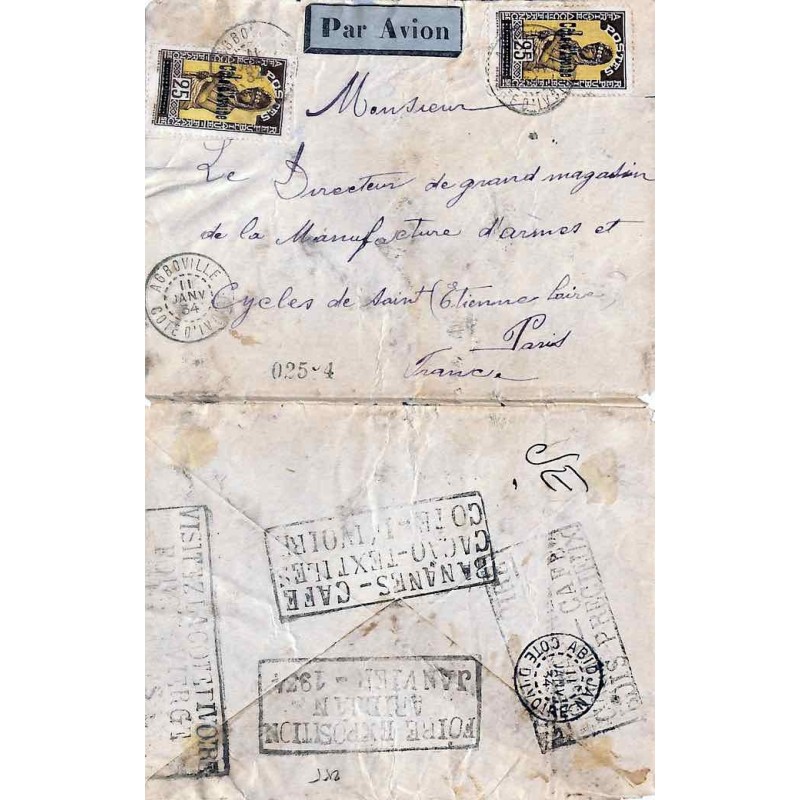 Par Avion
POSTES
25
Côte d'Ivoire
POSTES
25
Côte d'Ivoire
Monsieur
Le Directeur de grand magasin
de la Manufacture d'armes et
Cycles de Saint Etienne Loire
Paris
France
AGBOVILLE
11
JANV
34
COTE D'IVOIRE
025-4
BANANES - CAFE
CACAO - TEXTILES
COTE-D'IVOIRE
FOIRE EXPOSITION
ABIDJAN
JANVIER - 1934
VISITEZ LA COTE D'IVOIRE
BOIS PRECIEUX
ABIDJAN
11
JANV
34
COTE D'IVOIRE